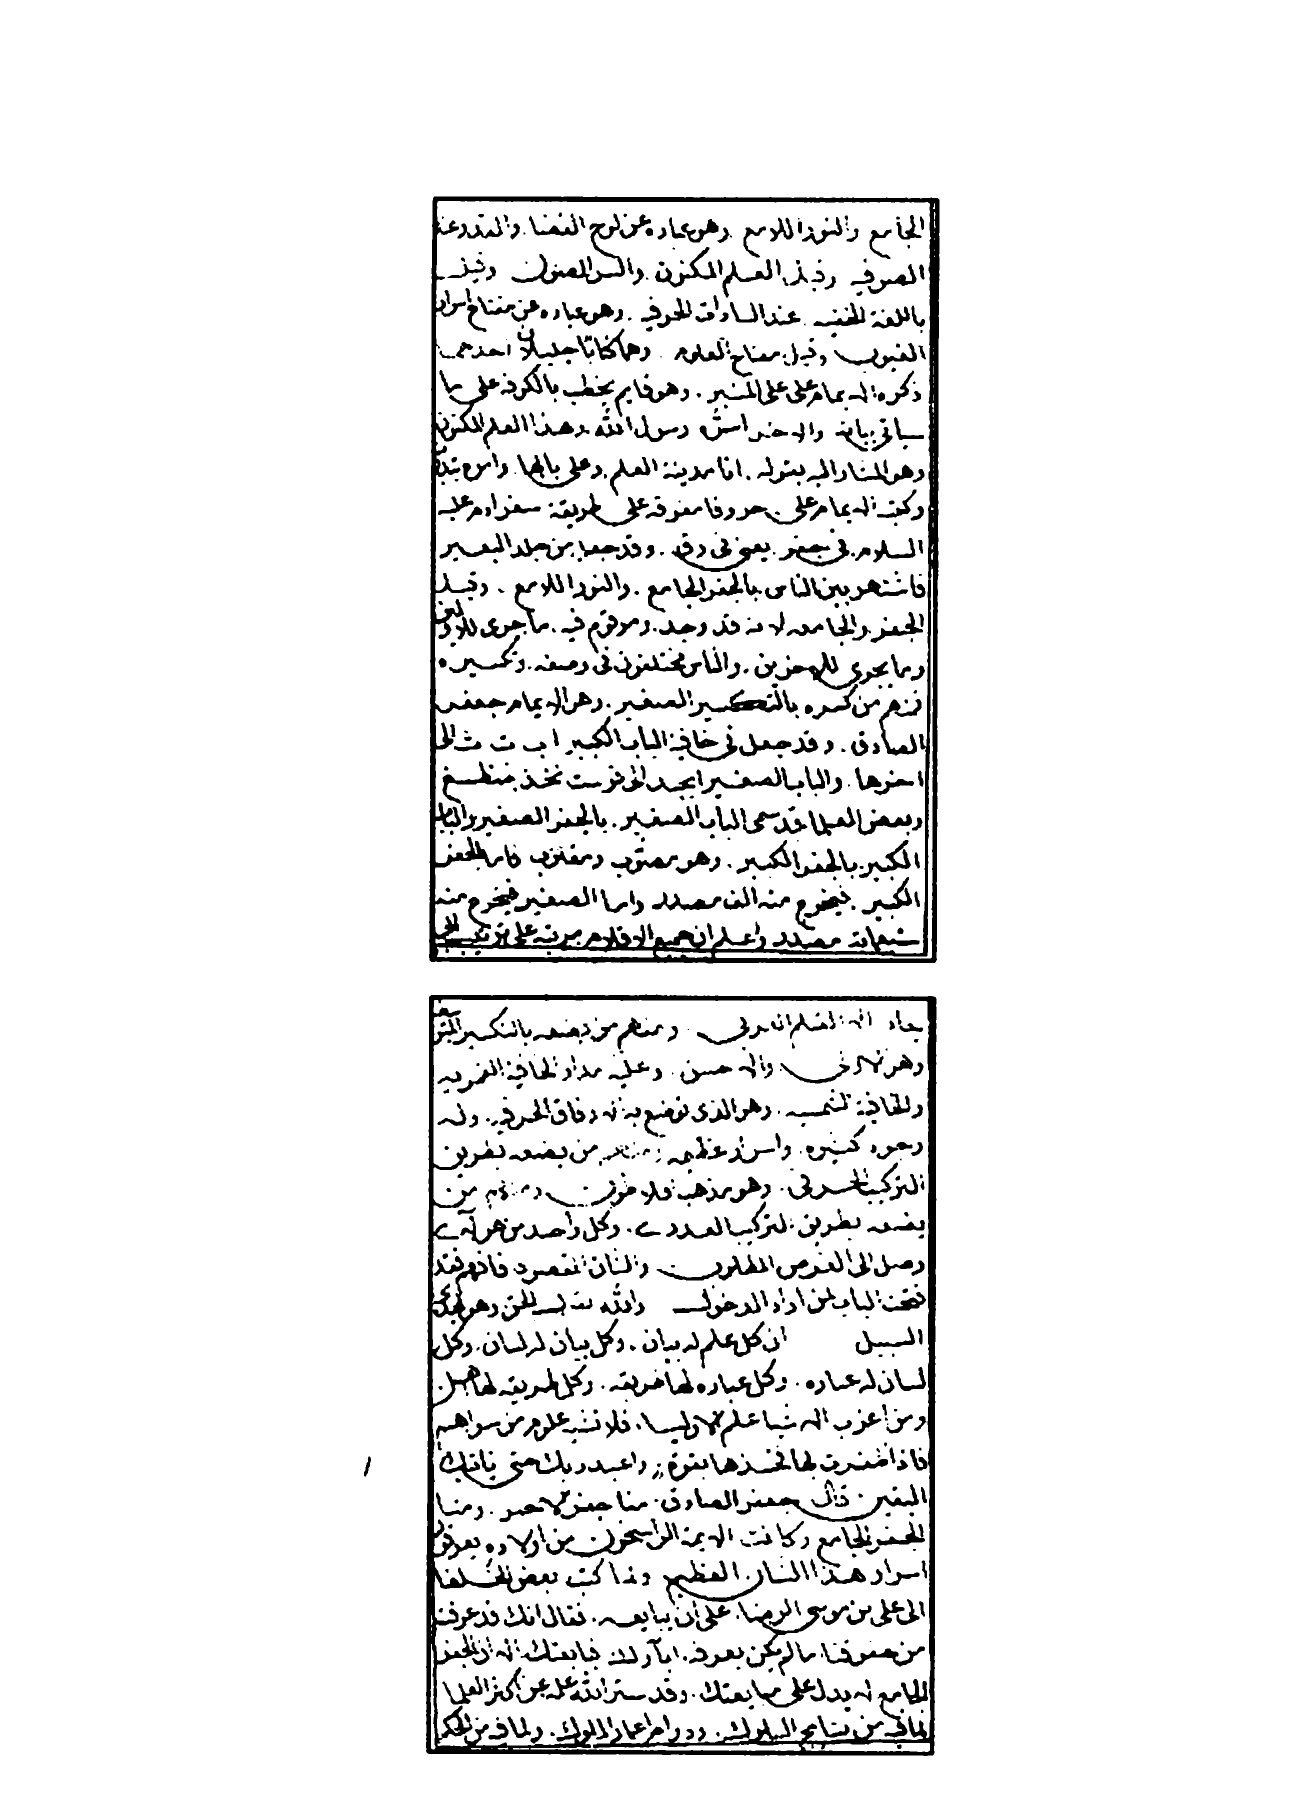 الجامع والنور اللامع وهو عباره عن لوح القضا والقدر عند
الصوفيه وقيل العلم المكنون والسر المصون وقيل
باللغة الخفيه عند السادات الحرفيه وهو عباره عن مفتاح اسرار
الغيوب وقيل مفتاح العلوم وهما كتابان جليلان احدهما
ذكره الامام على على المنبر وهو قايم يخطب بالكوفه على ما
سياتي بيانه والاخر اسره رسول الله وهذا العلم المكنون
وهو المشار اليه بقوله انا مدينة العلم وعلي بابها وامره بتدوينه
وكتبه الامام على حروفا مفرقه على طريقة سفر ادم عليه
السلام في جفر يعني في رق وقد جعل من جلد البعير
فاشتهر بين الناس بالجفر الجامع والنور اللامع وقيل
الجفر والجامعه لانه قد وجد ومرقوم فيه ما جرى للاولين
وما يجري للاخرين والناس مختلفون في وصفه وتكسيره
فمنهم من كسره بالتكسير الصغير وهو الامام جعفر
الصادق وقد جعل في خافية الباب الكبير ا ب ت ث الى
اخرها والباب الصغير ابجد الى قرست ثخذ ضظغ
وبعض العلما قد سمى الباب الصغير بالجفر الصغير والباب
الكبير بالجفر الكبير وهو مصوب ومقلوب فاما الجفر
الكبير فيخرج منه الف مصدر واما الصغير فيخرج منه
سبعماية مصدر واعلم ان جميع الاقلام مرتبه على ترتيب ابجد
الا القلم العربي ومنهم من يضعه بالتكسير المتوسط
وهو الاولى والاحسن وعليه مدار الخافية القمريه
والخافية الشمسيه وهو الذي توضع به الاوفاق الحرفيه وله
وجوه كثيره واسرار عظيمه ومنهم من يضعه بطريق
التركيب الحرفي وهو مذهب افلاطون ومنهم من
يضعه بطريق التركيب العددي وكل واحد من هولاء
وصل الى الغرض المطلوب والشان المقصود فافهم فقد
فتحت الباب لمن اراد الدخول والله يقول الحق وهو يهدي
السبيل ان كل علم له بيان وكل بيان له لسان وكل
لسان له عباره وكل عباره لها طريقه وكل طريقه لها اهل
ومن اغرب الاشيا علم الاوليا فلا تشبه علوم من سواهم
فاذا ظفرت بها فخذها بقوة واعبد ربك حتى ياتيك
اليقين قال جعفر الصادق منا جفر الاحمر ومنا
الجفر الجامع وكانت الايمة الراسخون من اولاده يعرفون
اسرار هذا الشان العظيم ولما كتب بعض الخلفا
الى على بن موسى الرضا على ان يبايعه فقال انك قد عرفت
من حقوقنا ما لم يكن يعرفه اباؤك فبايعتك الا ان الجفر
الجامع لا يدل على مبايعتك وقد ستر الله علمه عن اكثر العلما
لما فيه من نتايج السلوك ودوام اعمار الملوك ولما فيه من الحكم